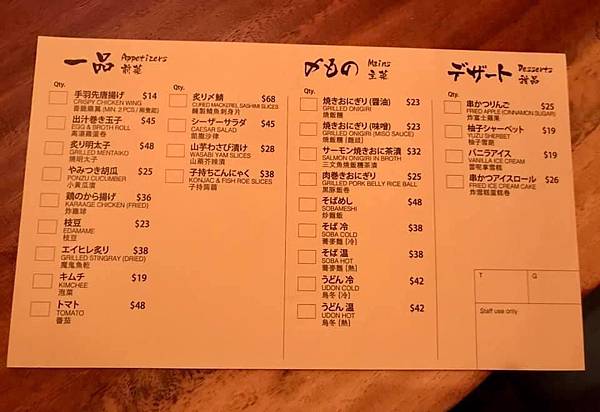 一品 Appetizers
前菜
Qty.
手羽先唐揚げ $14
CRISPY CHICKEN WING
出汁巻き玉子 $45
EGG & BROTH ROLL
高湯雞蛋卷
炙り明太子 $48
GRILLED MENTAIKO
燒明太子
やみつき胡瓜 $25
PONZU CUCUMBER
小黃瓜漬
鶏のから揚げ $36
KARAAGE CHICKEN (FRIED)
炸雞球
枝豆 $23
EDAMAME
枝豆
エイヒレ炙り $38
GRILLED STINGRAY (DRIED)
魔鬼魚乾
キムチ $19
KIMCHEE
泡菜
トマト $48
TOMATO
番茄
Qty.
炙り〆鯖 $68
CURED MACKEREL SASHIMI SLICES
醃製鯖魚刺身片
シーザーサラダ $45
CAESAR SALAD
凱撒沙律
山芋わさび漬け $28
WASABI YAM SLICES
山葵芥辣漬
子持ちこんにゃく $38
KONJAC & FISH ROE SLICES
子持蒟蒻
〆もの Mains
主菜
Qty.
焼きおにぎり (醤油) $23
GRILLED ONIGIRI
燒飯糰
焼きおにぎり (味噌) $23
GRILLED ONIGIRI (MISO SAUCE)
燒飯糰 (麵豉)
サーモン焼きおにぎり茶漬 $32
SALMON ONIGIRI IN BROTH
三文魚燒飯糰茶漬
肉巻きおにぎり $25
GRILLED PORK BELLY RICE BALL
黑豚飯卷
そばめし $48
SOBAMESHI
炒麵飯
そば 冷 $38
SOBA COLD
蕎麥麵 (冷)
そば 温 $38
SOBA HOT
蕎麥麵 (熱)
うどん 冷 $42
UDON COLD
烏冬 (冷)
うどん 温 $42
UDON HOT
烏冬 (熱)
デザート Desserts
甜品
Qty.
串かつりんご $25
FRIED APPLE (CINNAMON SUGAR)
炸富士蘋果
柚子シャーベット $19
YUZU SHERBET
柚子雪葩
バニラアイス $19
VANILLA ICE CREAM
雲呢拿雪糕
串かつアイスロール $26
FRIED ICE CREAM CAKE
炸雪糕蛋糕卷
T
G
Staff use only